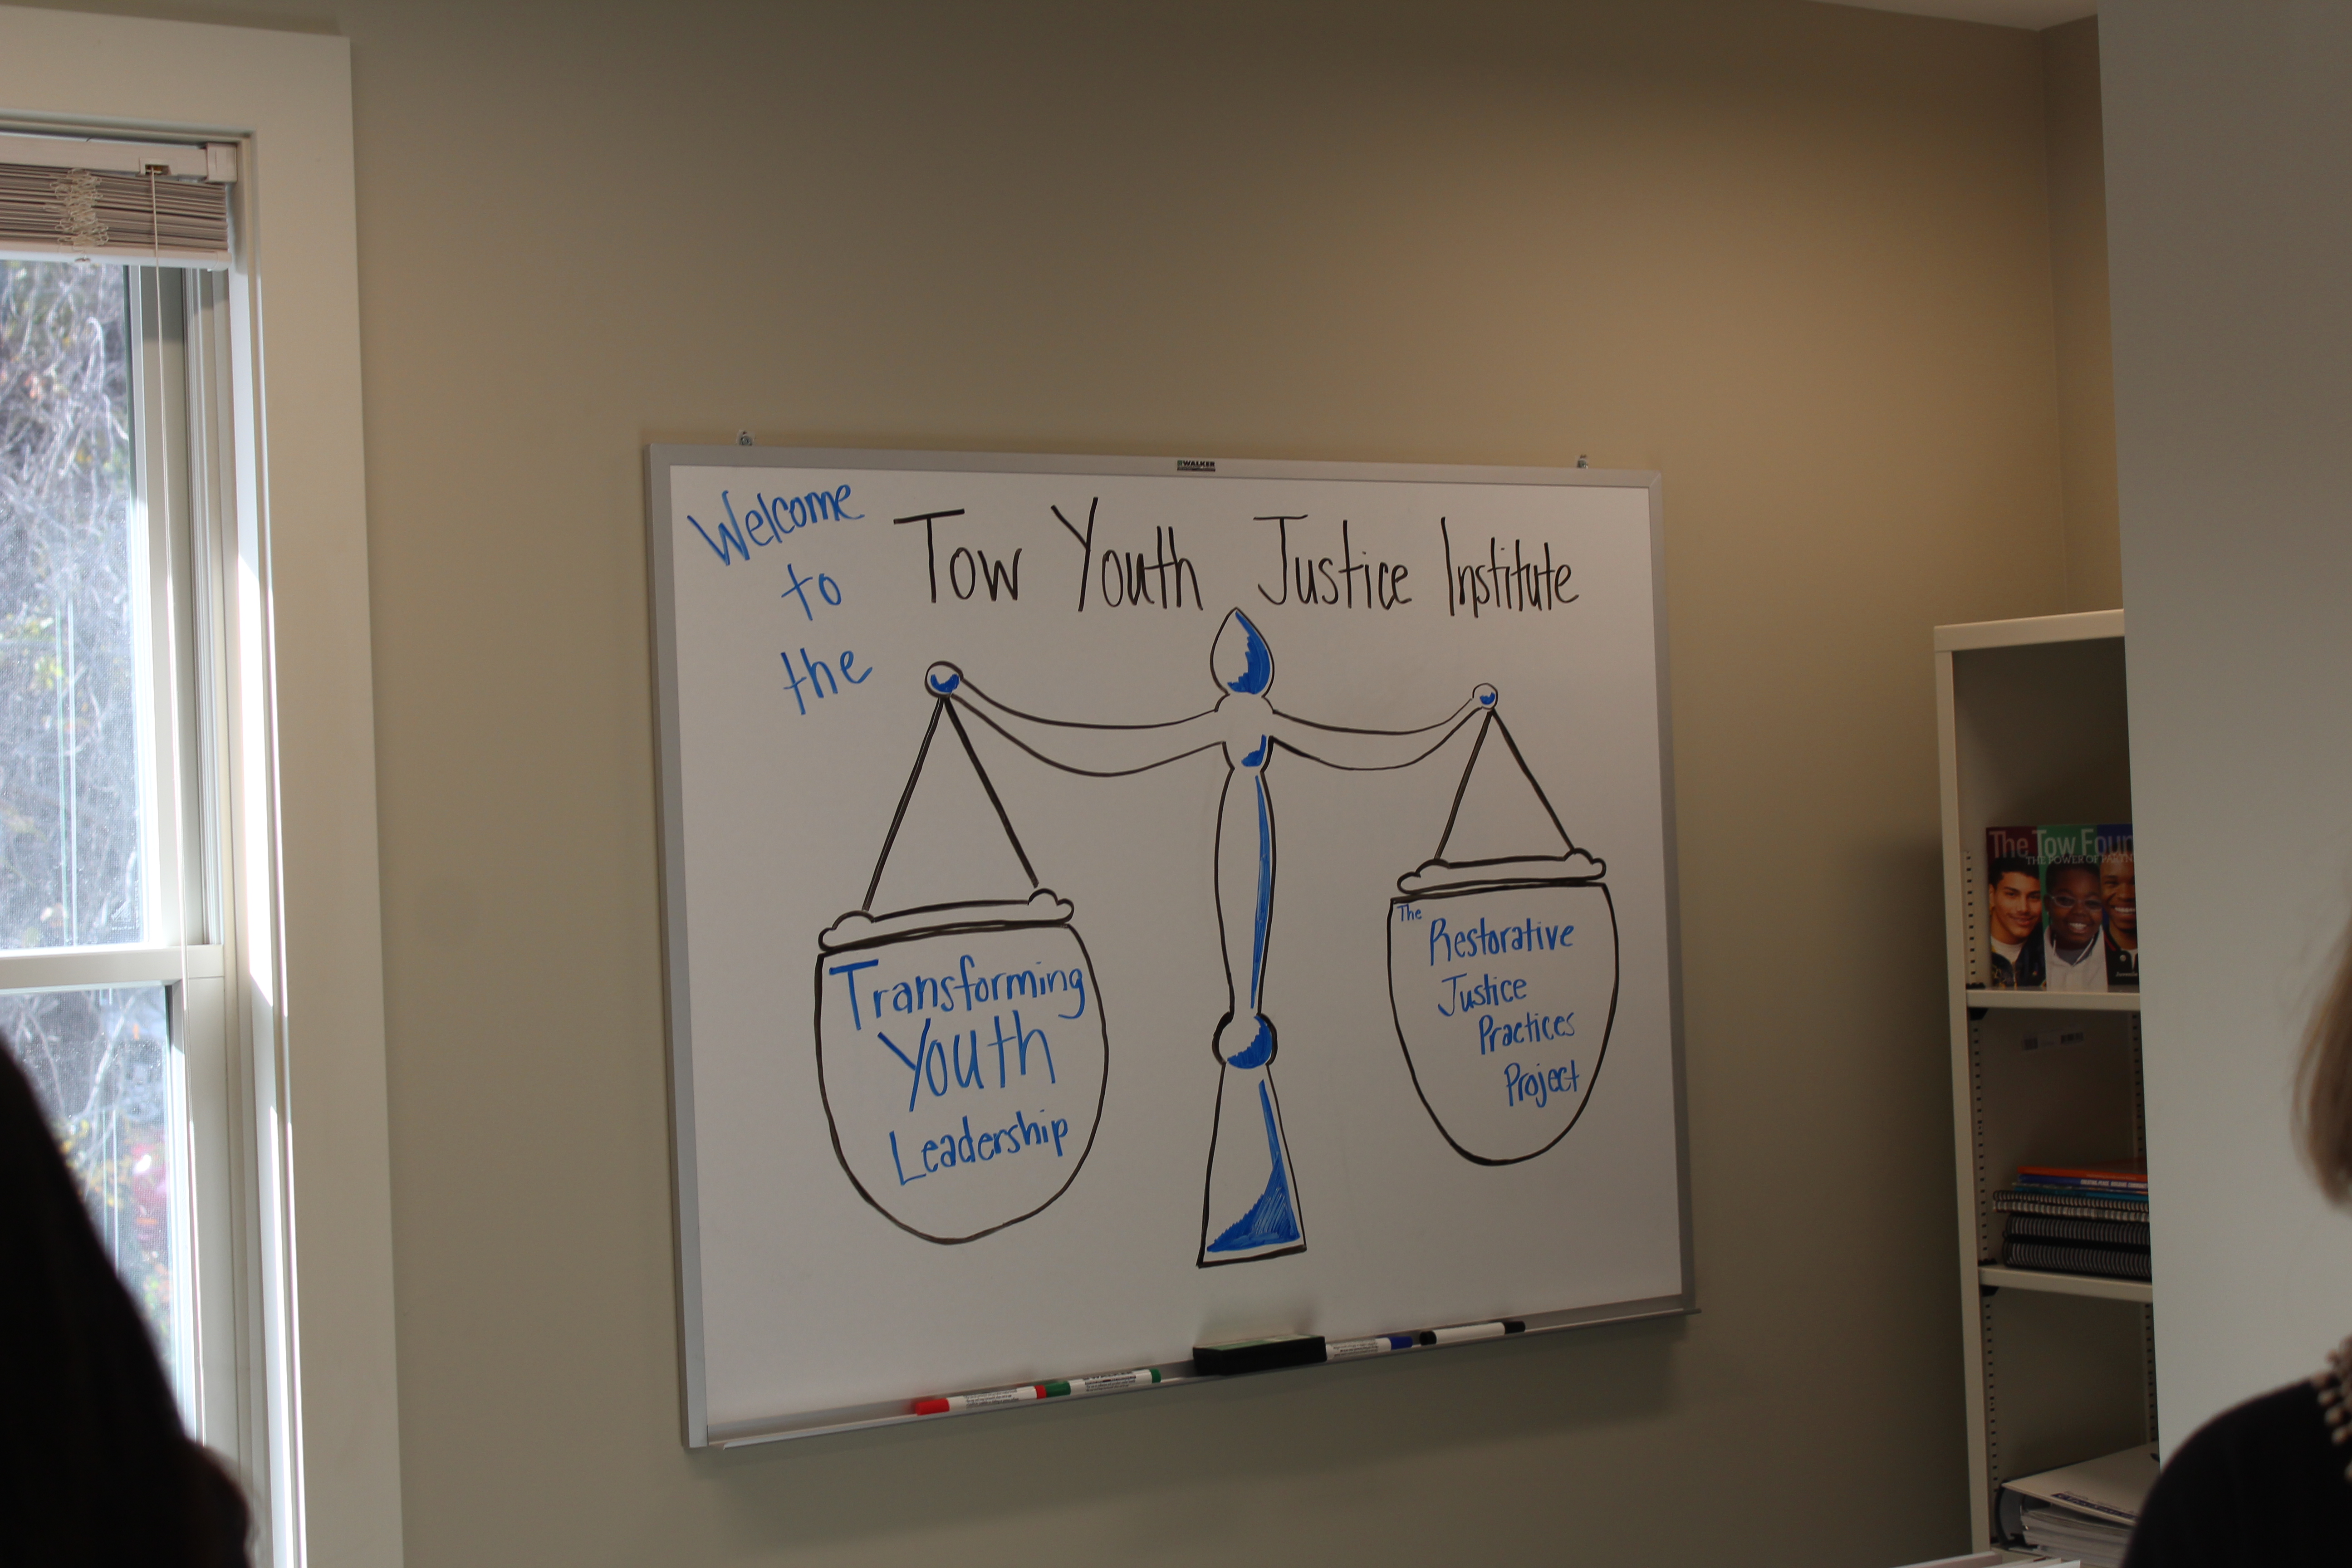 WALKER
Welcome
to
the
Tow Youth Justice Institute
Transforming
Youth
Leadership
The
Restorative
Justice
Practices
Project
The Tow Foun
THE POWER OF PARTN